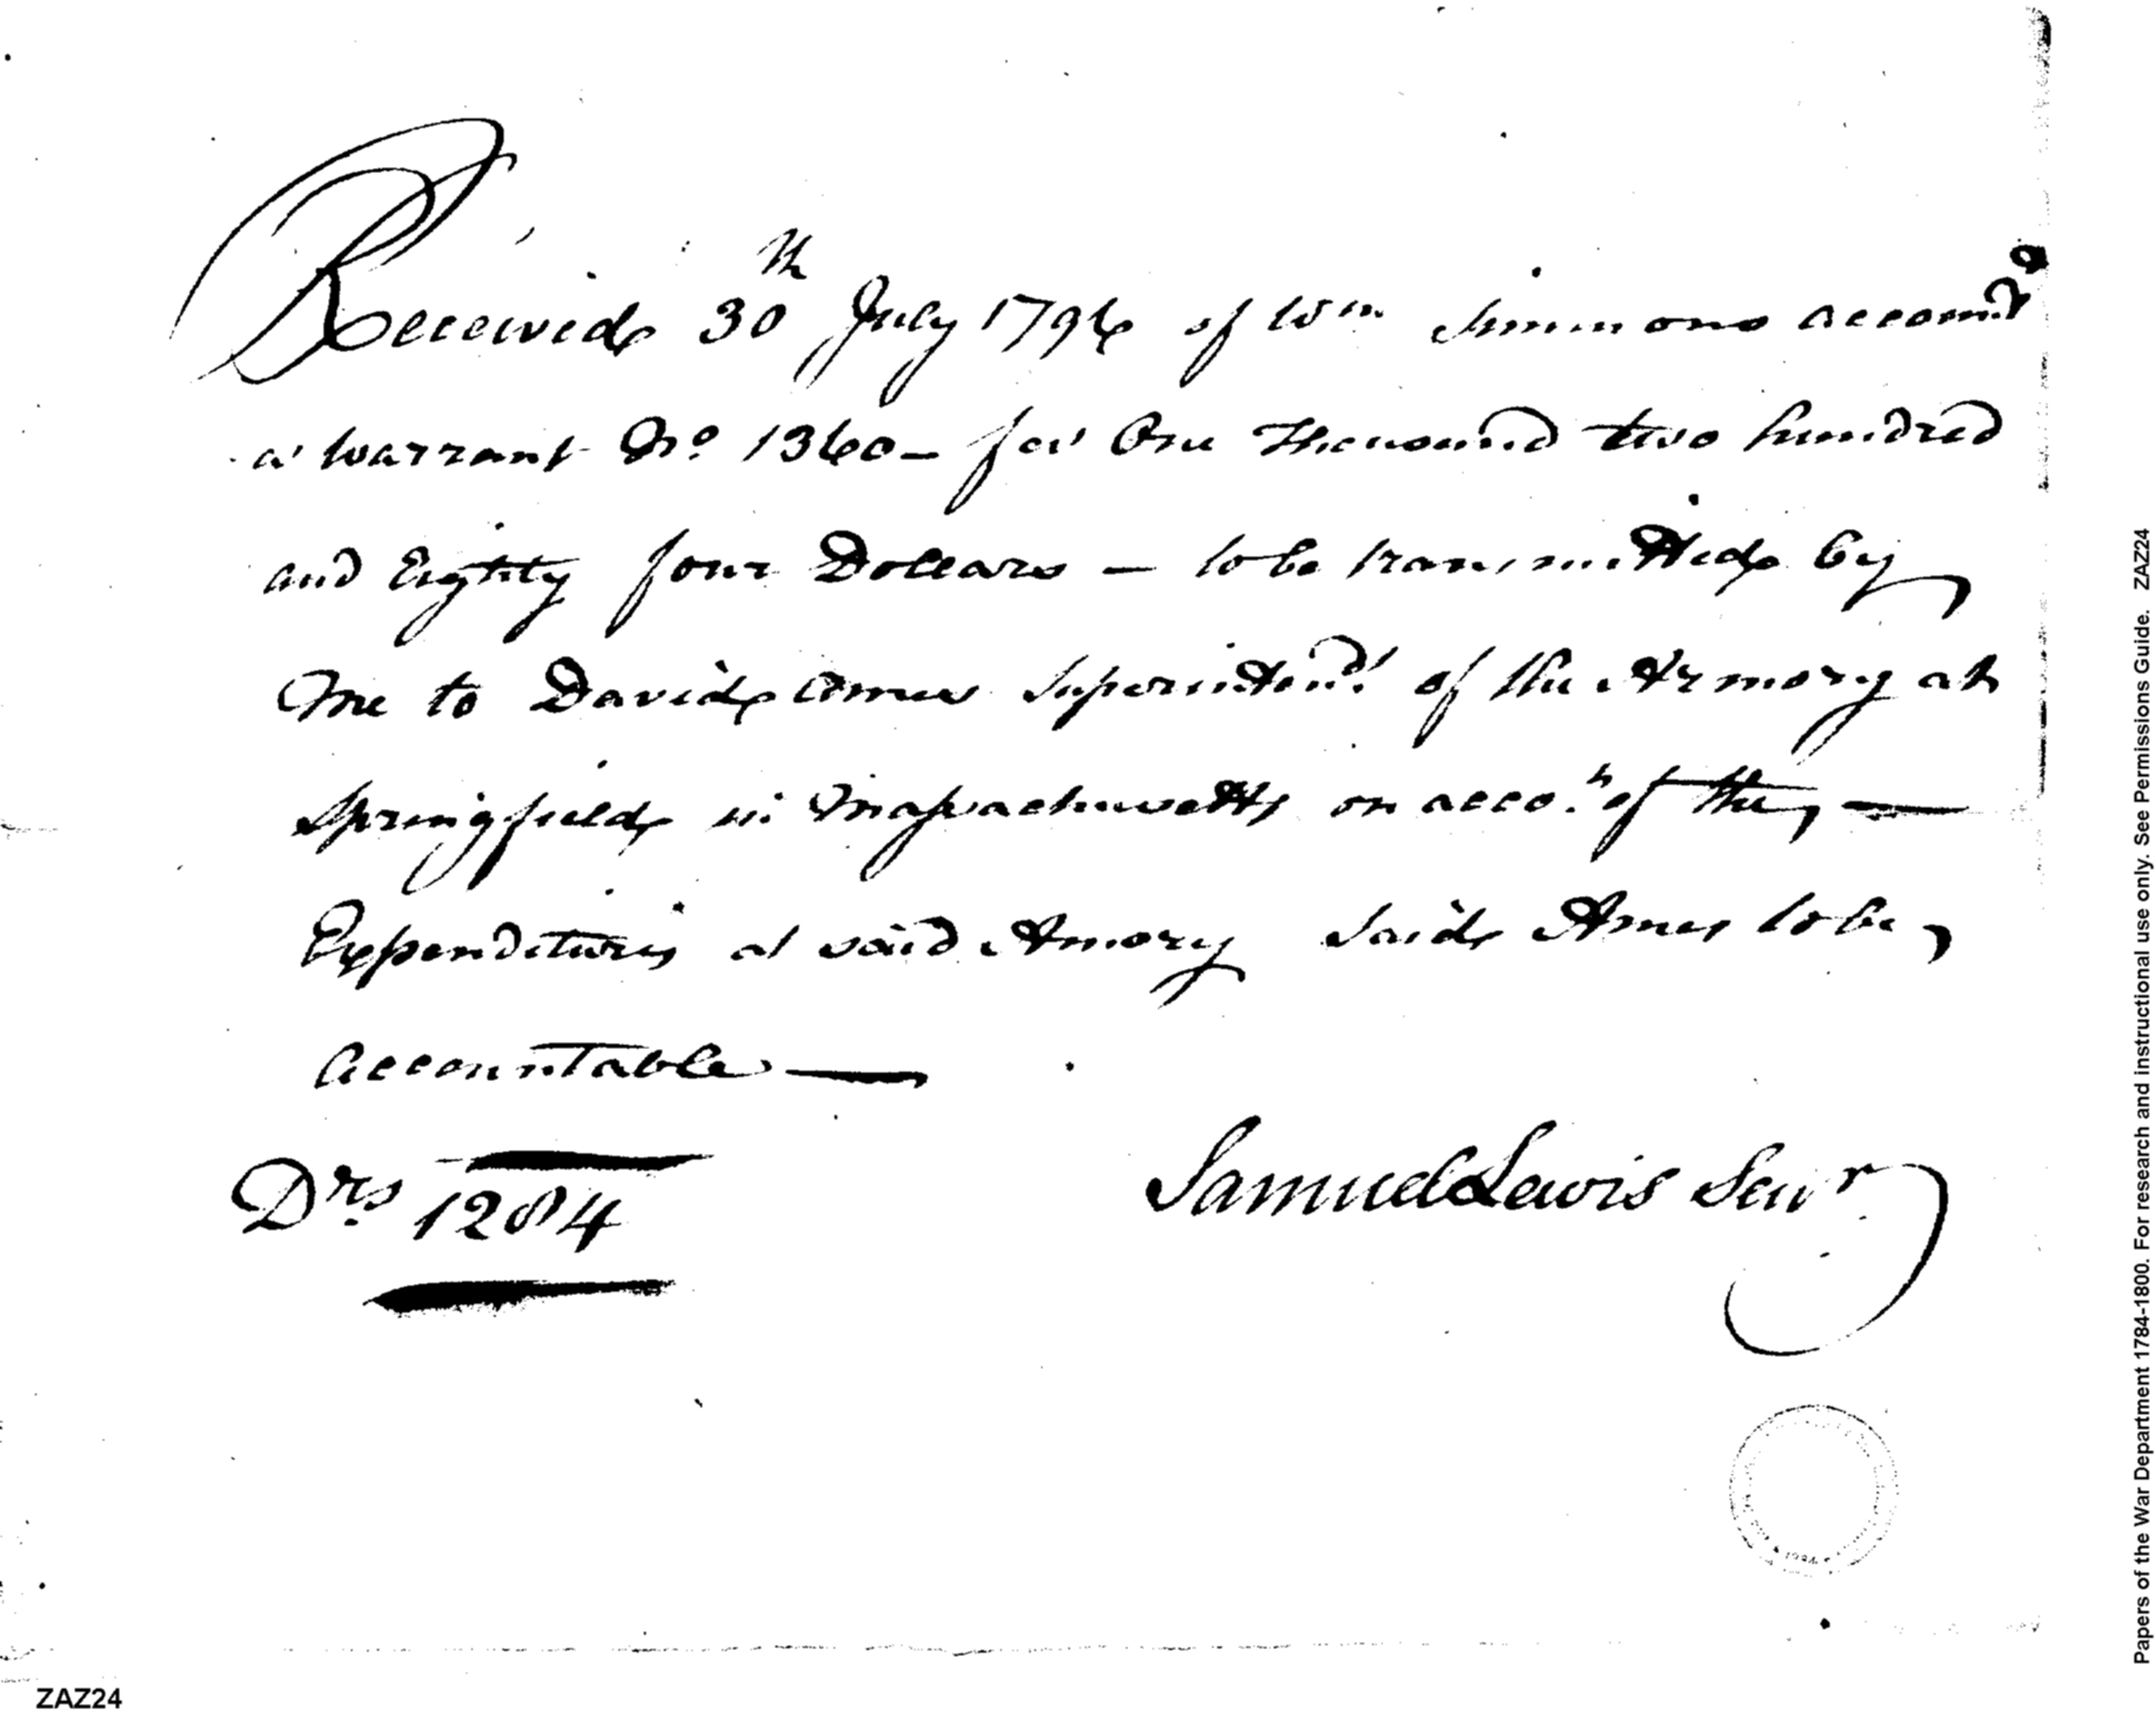 Received 30th July 1796 of Wm Simmons accomt
a warrant No 1360 - for One Thousand two hundred
and Eighty four Dollars — to be transmitted by
me to David Ames Superintendt of the Armory at
Springfield in Massachusetts on accot of the —
Expenditures at said Armory said Ames to be
accountable —
Drs 1284
Samuel Lewis Senr
ZAZ24
Papers of the War Department 1784-1800. For research and instructional use only. See Permissions Guide. ZAZ24